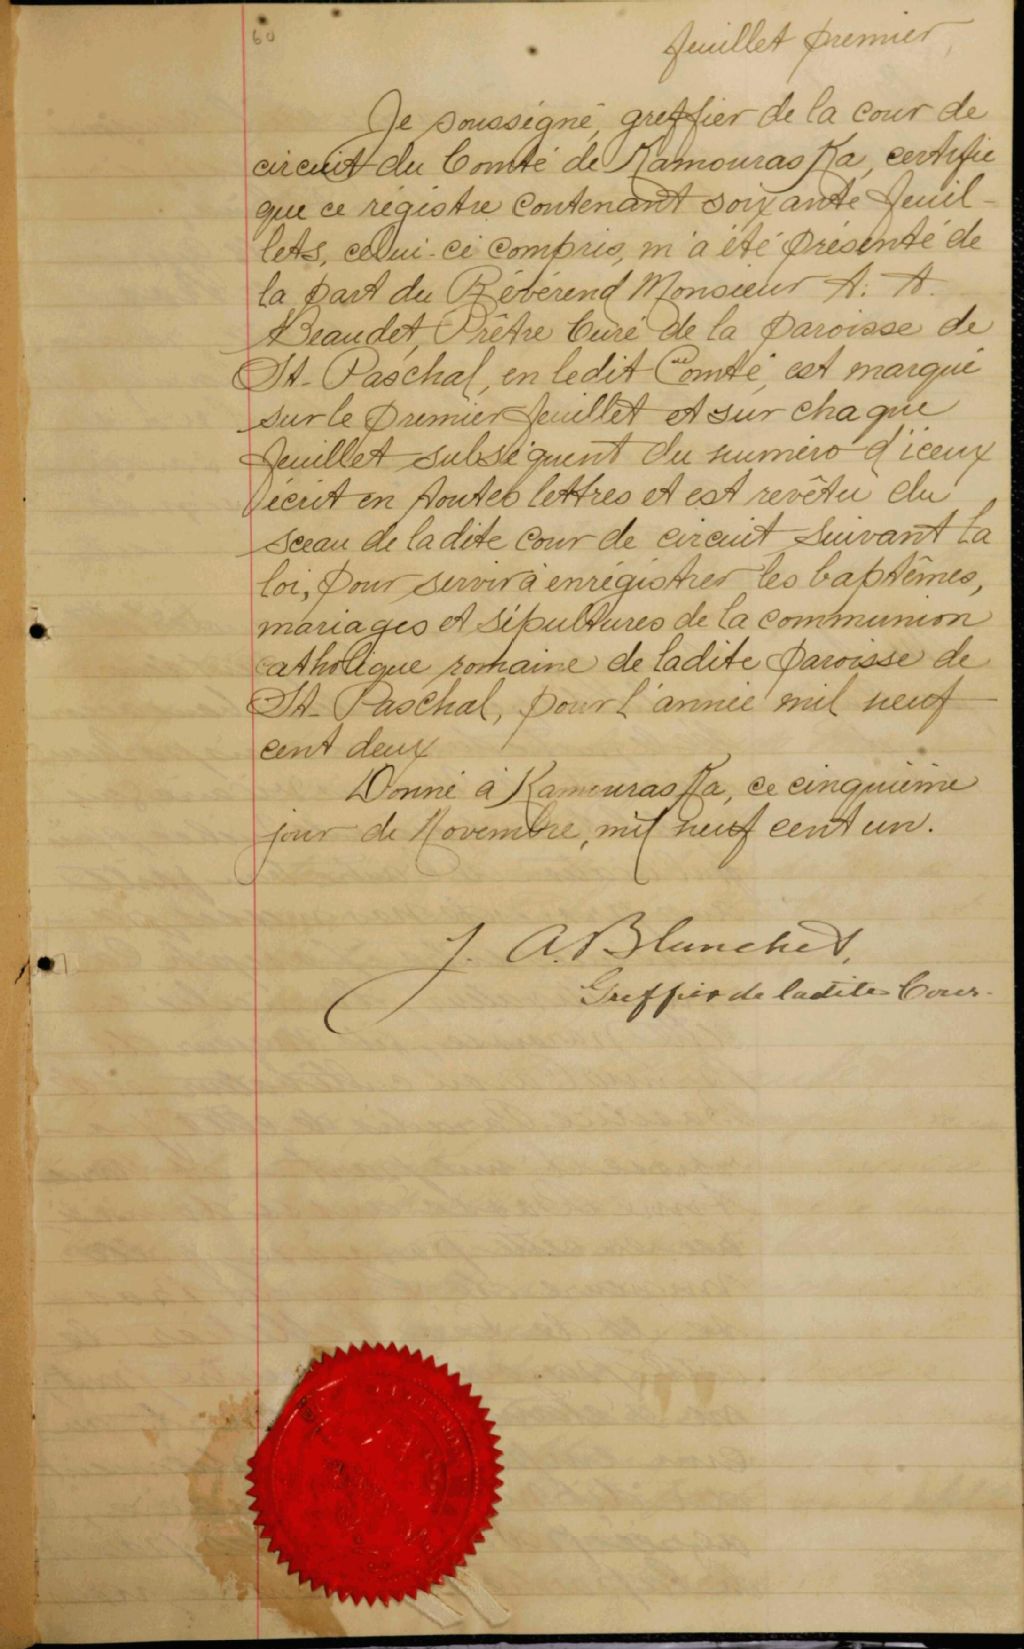 60
feuillet premier
Je soussigné, greffier de la cour de
circuit du Comté de Kamouraska, certifie
que ce régistre contenant soixante feuil-
lets, celui-ci compris, m'a été présenté de
la part du Révérend Monsieur A. A.
Beaudet, Prêtre Curé de la paroisse de
St-Paschal, en ledit Comté, est marqué
sur le premier feuillet et sur chaque
feuillet subséquent du numéro d'iceux
écrit en toutes lettres et est revêtu du
sceau de ladite cour de circuit, suivant la
loi, pour servir à enrégistrer les baptêmes,
mariages et sépultures de la communion
catholique romaine de ladite paroisse de
St-Paschal, pour l'année mil neuf
cent deux
Donné à Kamouraska, ce cinquième
jour de Novembre, mil neuf cent un.
J. A. Blanchet,
Greffier de ladite Cour.